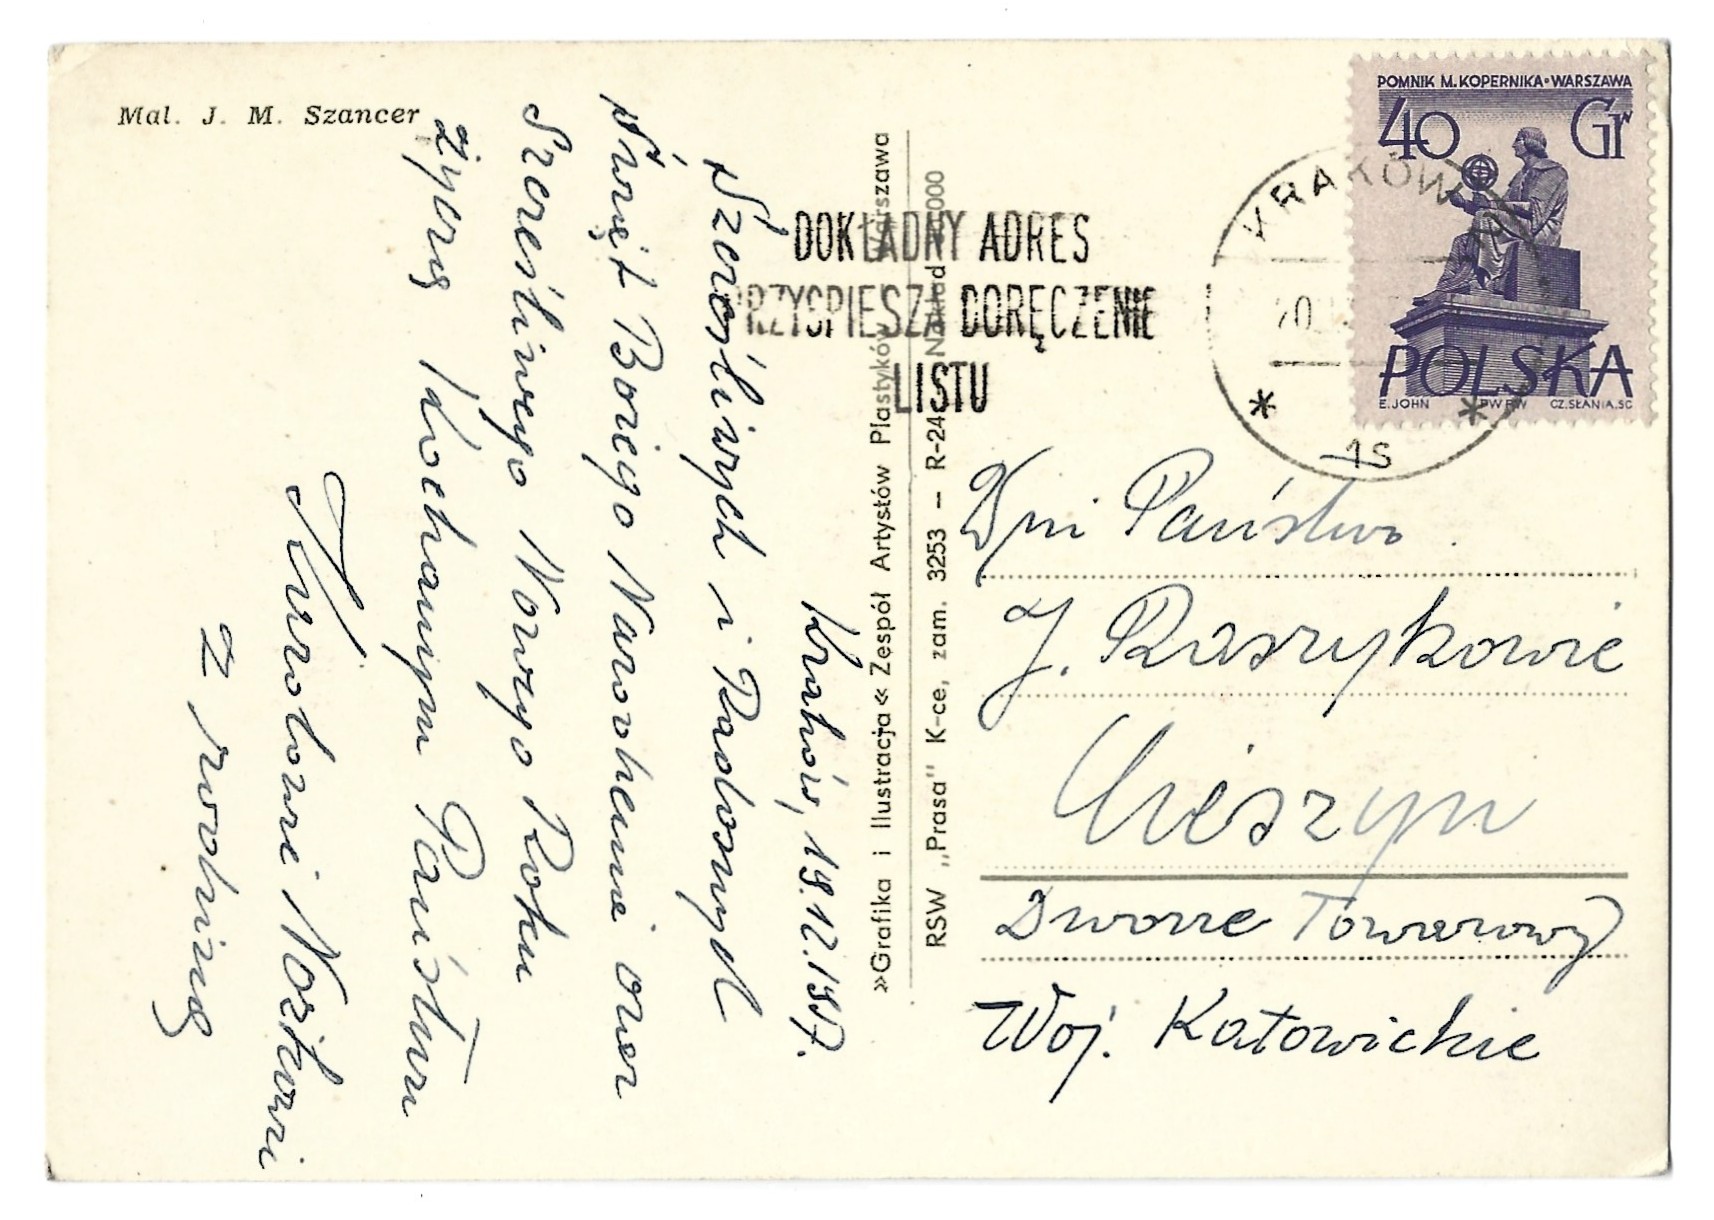 Mal. J. M. Szancer
Kraków, 19.12.1957.
Szczęśliwych i Radosnych
Świąt Bożego Narodzenia oraz
Szczęśliwego Nowego Roku
życzą Kochanym Państwu
z rodziną
»Grafika i Ilustracja« Zespół Artystów Plastyków Warszawa
RSW „Prasa" K-ce, zam. 3253 – R-24 Nakład 000
DOKŁADNY ADRES
PRZYSPIESZA DORĘCZENIE
LISTU
KRAKÓW
20
15
POMNIK M. KOPERNIKA•WARSZAWA
40 Gr
POLSKA
E. JOHN PWPW CZ. SŁANIA. SC
Wni Państwo
J. Raszykowie
Cieszyn
Dworzec Towarowy
Woj. Katowickie